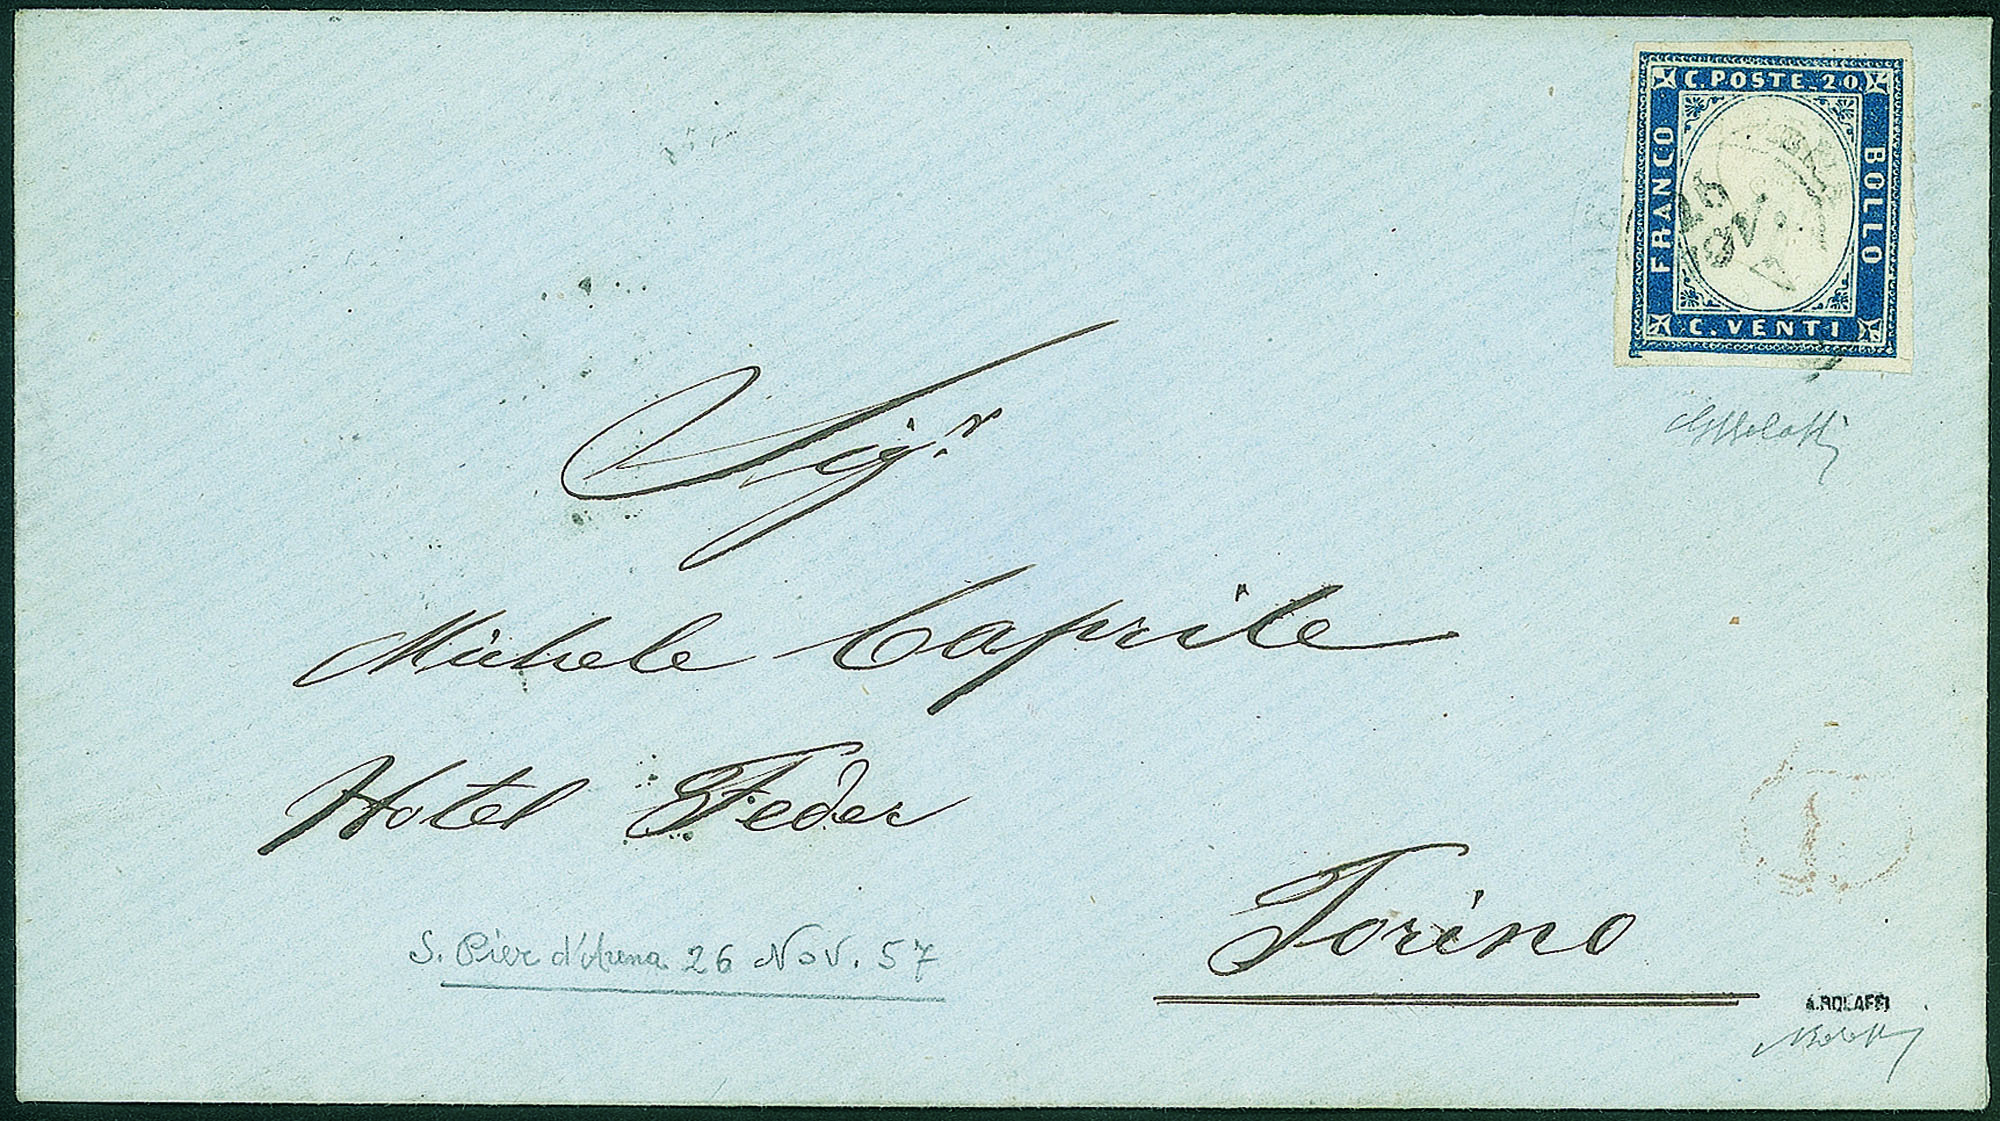 C. POSTE. 20.
FRANCO
BOLLO
C. VENTI
Sig.r
Michele Caprile
Hotel Feder
Torino
S. Pier d'Arena 26 Nov. 57
A. BOLAFFI